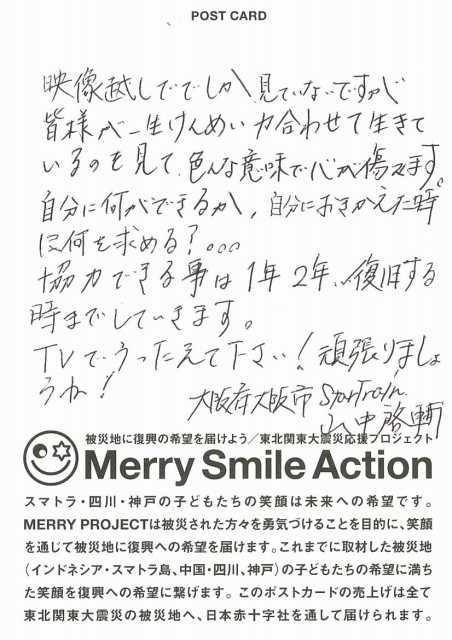 POST CARD
映像越しででしか見ていないですが
皆様が一生けんめい力合わせて生きて
いるのを見て、色んな意味で心が傷みます。
自分に何ができるか、自分におきかえた時
は何を求める?。。。
協力できる事は1年2年、、復旧する
時までしていきます。
TVでうったえて下さい!頑張りましょ
うね!
大阪府大阪市 StarTrain
山中啓輔
被災地に復興の希望を届けよう/東北関東大震災応援プロジェクト
Merry Smile Action
スマトラ・四川・神戸の子どもたちの笑顔は未来への希望です。
MERRY PROJECTは被災された方々を勇気づけることを目的に、笑顔
を通じて被災地に復興への希望を届けます。これまでに取材した被災地
(インドネシア・スマトラ島、中国・四川、神戸)の子どもたちの希望に満ち
た笑顔を復興への希望に繋げます。このポストカードの売上げは全て
東北関東大震災の被災地へ、日本赤十字社を通して届けられます。